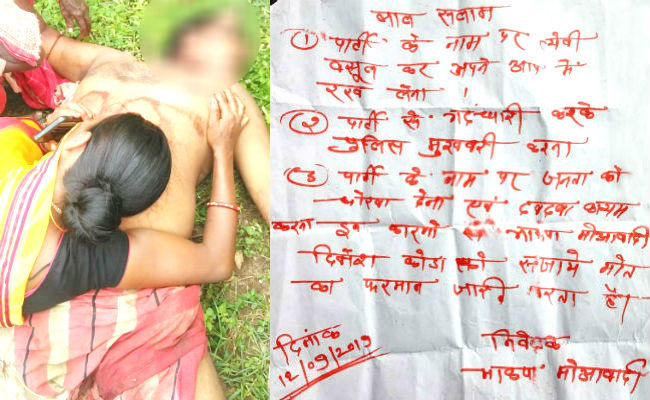 लाल सलाम
① पार्टी के नाम पर लेवी
वसूल कर अपने आप में
रख लेना ।
② पार्टी से गद्दारी करके
पुलिस मुखबरी करना
③ पार्टी के नाम पर जनता को
धोखा देना एवं दबदबा कायम
करना इन कारणों से भाकपा मोआवादी
दिनेश कोडा को सजाये मोत
का फरमान जारी करता है।
दिनांक
12/09/2019
निवेदक
भाकपा मोआवादी